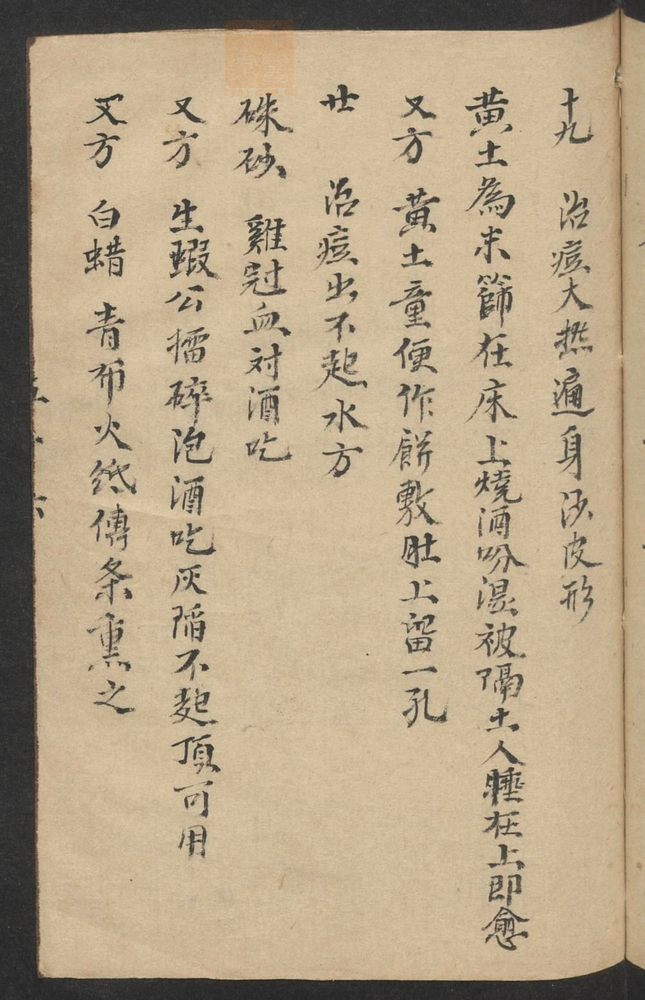 十九 治痘大热遍身沙皮形
黄土為末篩在床上燒酒吩湿被隔土人睡在上即愈
又方 黄土童便作餅敷肚上留一孔
廿 治痘出不起水方
硃砂 雞冠血対酒吃
又方 生蝦公擂碎泡酒吃灰陷不起頂可用
又方 白蜡 青布火紙傳条熏之